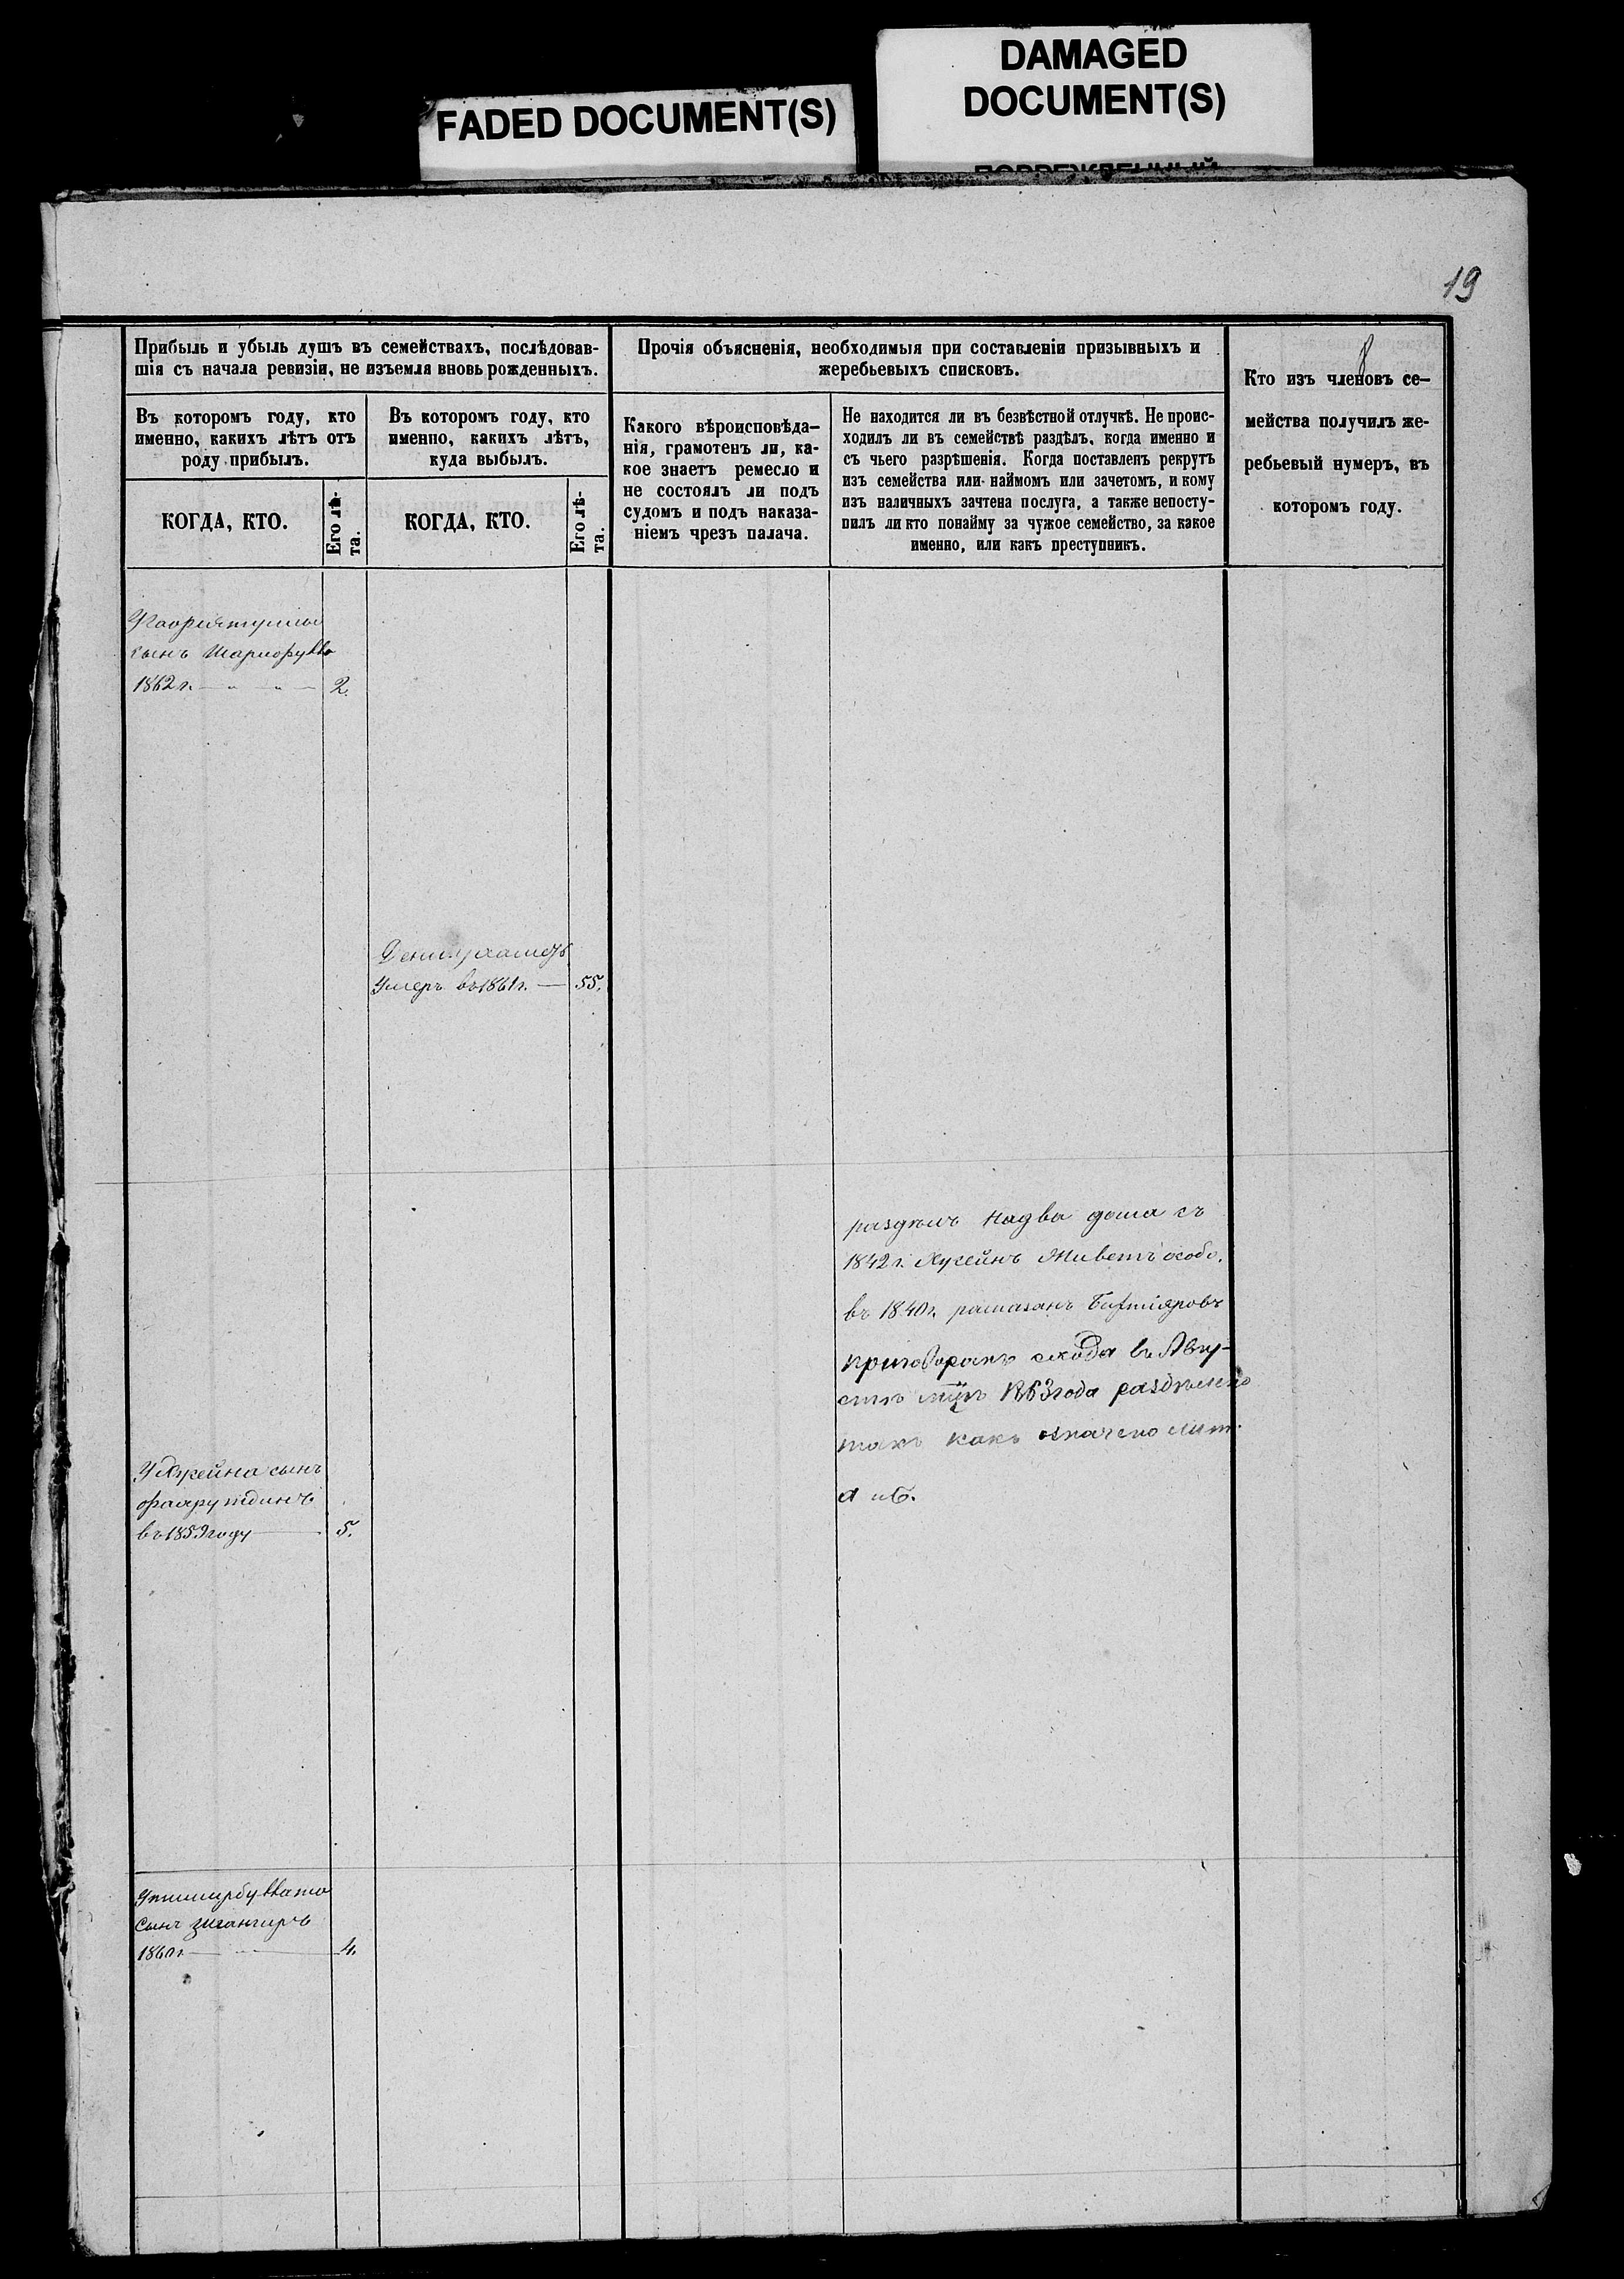 DAMAGED
DOCUMENT(S)
FADED DOCUMENT(S)
19
8
Прибыль и убыль душъ въ семействахъ, послѣдовав-
шія съ начала ревизіи, не изъемля вновь рожденныхъ.
Въ которомъ году, кто
именно, какихъ лѣтъ отъ
роду прибылъ.
КОГДА, КТО.
Его лѣ-
та.
Въ которомъ году, кто
именно, какихъ лѣтъ,
куда выбылъ.
КОГДА, КТО.
Его лѣ-
та.
Прочія объясненія, необходимыя при составленіи призывныхъ и
жеребьевыхъ списковъ.
Какого вѣроисповѣда-
нія, грамотенъ ли, ка-
кое знаетъ ремесло и
не состоялъ ли подъ
судомъ и подъ наказа-
ніемъ чрезъ палача.
Не находится ли въ безвѣстной отлучкѣ. Не проис-
ходилъ ли въ семействѣ раздѣлъ, когда именно и
съ чьего разрѣшенія. Когда поставленъ рекрутъ
изъ семейства или наймомъ или зачетомъ, и кому
изъ наличныхъ зачтена послуга, а также непосту-
пилъ ли кто понайму за чужое семейство, за какое
именно, или какъ преступникъ.
Кто изъ членовъ се-
мейства получилъ же-
ребьевый нумеръ, въ
которомъ году.
сынъ
1862 г. 2.
умеръ въ 1861 г. 55.
раздѣлъ на два дома съ
1842 г. Хусейнъ Живетъ особо.
въ 1840 г. рамазанъ
приговоромъ схода въ Авгу-
стѣ 1863 года раздѣлено
такъ какъ означено лит.
а и б.
У Хусейна сынъ
въ 1859 году 5.
сынъ
1860 г. 4.